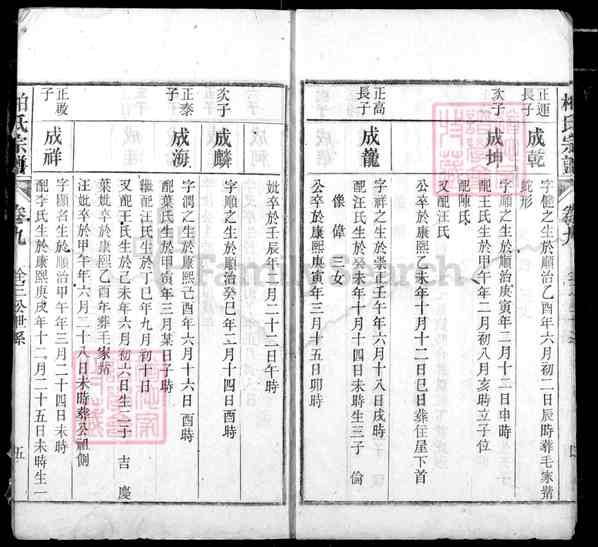 柏氏宗譜
卷九
正運長子
成乾
字健之生於順治乙酉年六月初二日辰時葬毛家
蛇形
次子
成坤
字順之生於順治庚寅年二月十二日申時
配王氏生於甲午年二月初八月亥時立子位
配陳氏
又配汪氏
公卒於康熙乙未年十月十二日巳日葬住屋下首
正高長子
成龍
字祥之生於崇正壬午年六月十八日戌時
配汪氏生於癸未年十月十四日未時生三子 倫
像 偉 三女
公卒於康熙庚寅年三月十五日卯時
妣卒於壬辰年二月二十二日午時
次子
成麟
字順之生於順治癸巳年二月十四日酉時
正泰子
成海
字潤之生於康熙己酉年六月十六日酉時
配葉氏生於甲寅年三月某日子時
繼配汪氏生於丁巳年九月初十日
又配王氏生於己未年六月初六日生二子 吉 慶
葉妣卒於康熙乙酉年葬毛家
汪妣卒於甲午年六月二十八日未時葬公祖側
正啟子
成祥
字順名生於順治甲午年三月二十四日未時
配李氏生於康熙庚戌年十二月二十五日未時生一
柏氏宗譜
卷九
全三公世系
五
FamilySearch